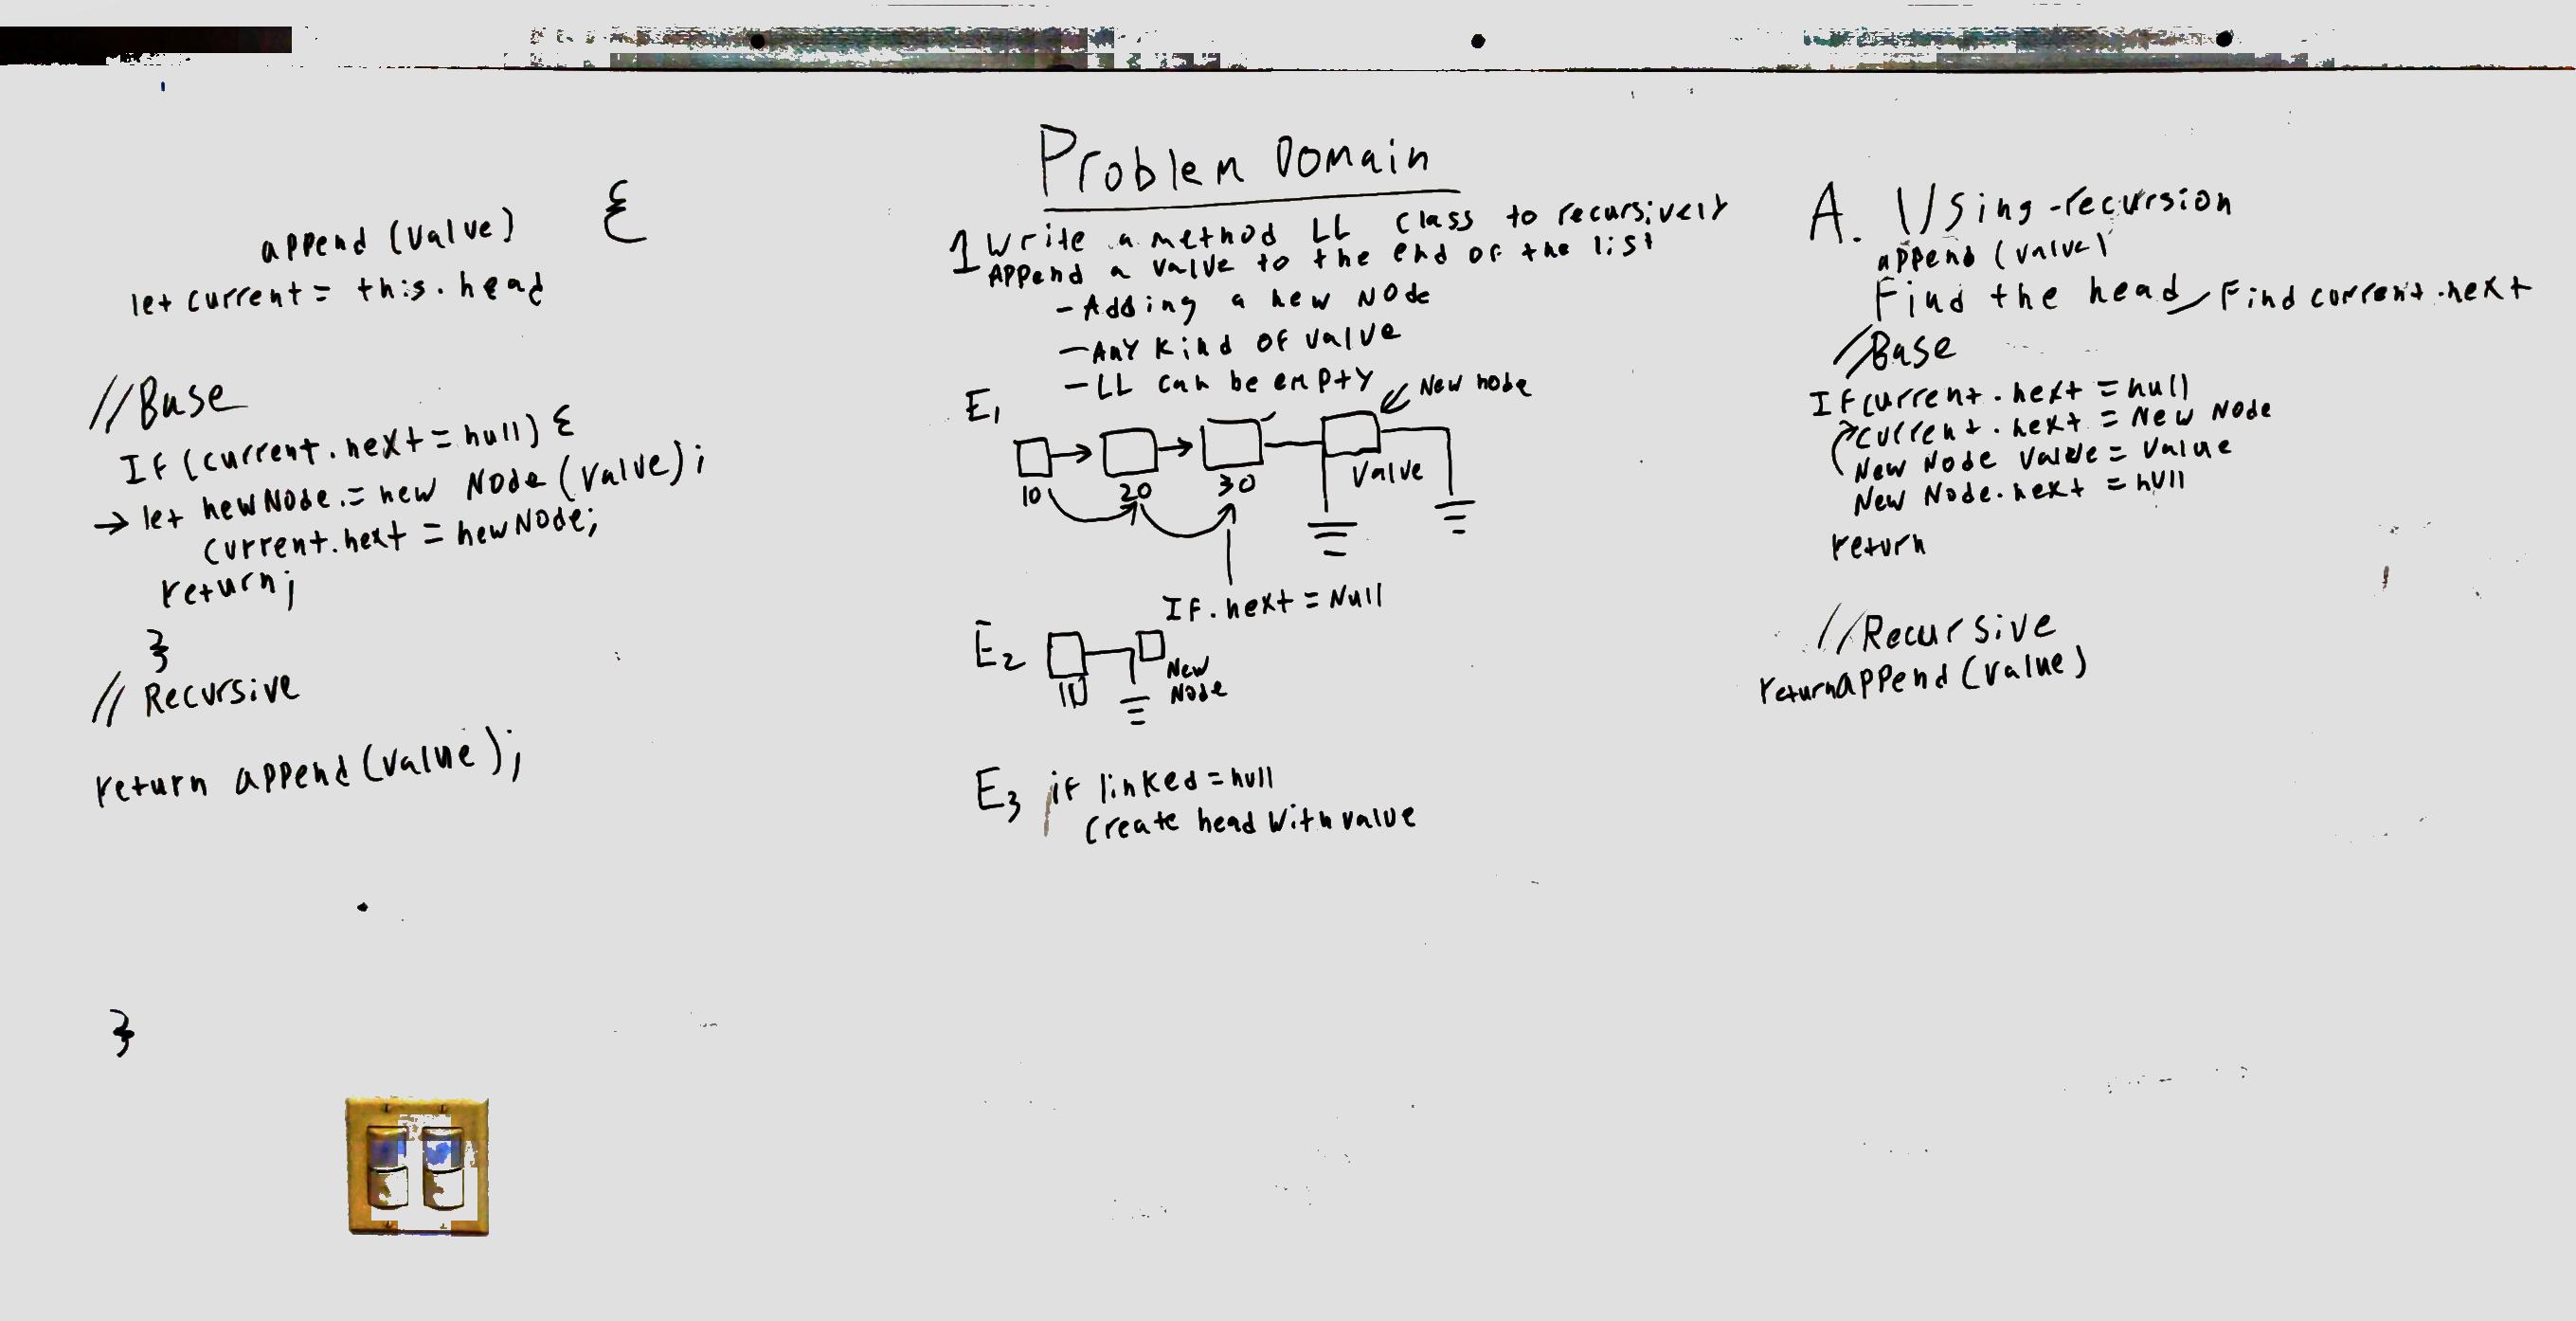 append (value) {
let current = this.head
//Base
If (current.next = null) {
→ let newNode = new Node (value);
current.next = newNode;
return;
}
// Recursive
return append (value);
}
Problem Domain
1 Write a method LL class to recursively
Append a value to the end of the list
- Adding a new Node
- Any kind of value
- LL can be empty
New node
E1
10 20 30 Value
If .next = Null
E2
10
New
Node
E3 if linked = null
Create head with value
A. Using-recursion
append (value)
Find the head Find current.next
//Base
If current.next = null
current.next = New Node
New Node Value = Value
New Node.next = null
return
//Recursive
return append (value)